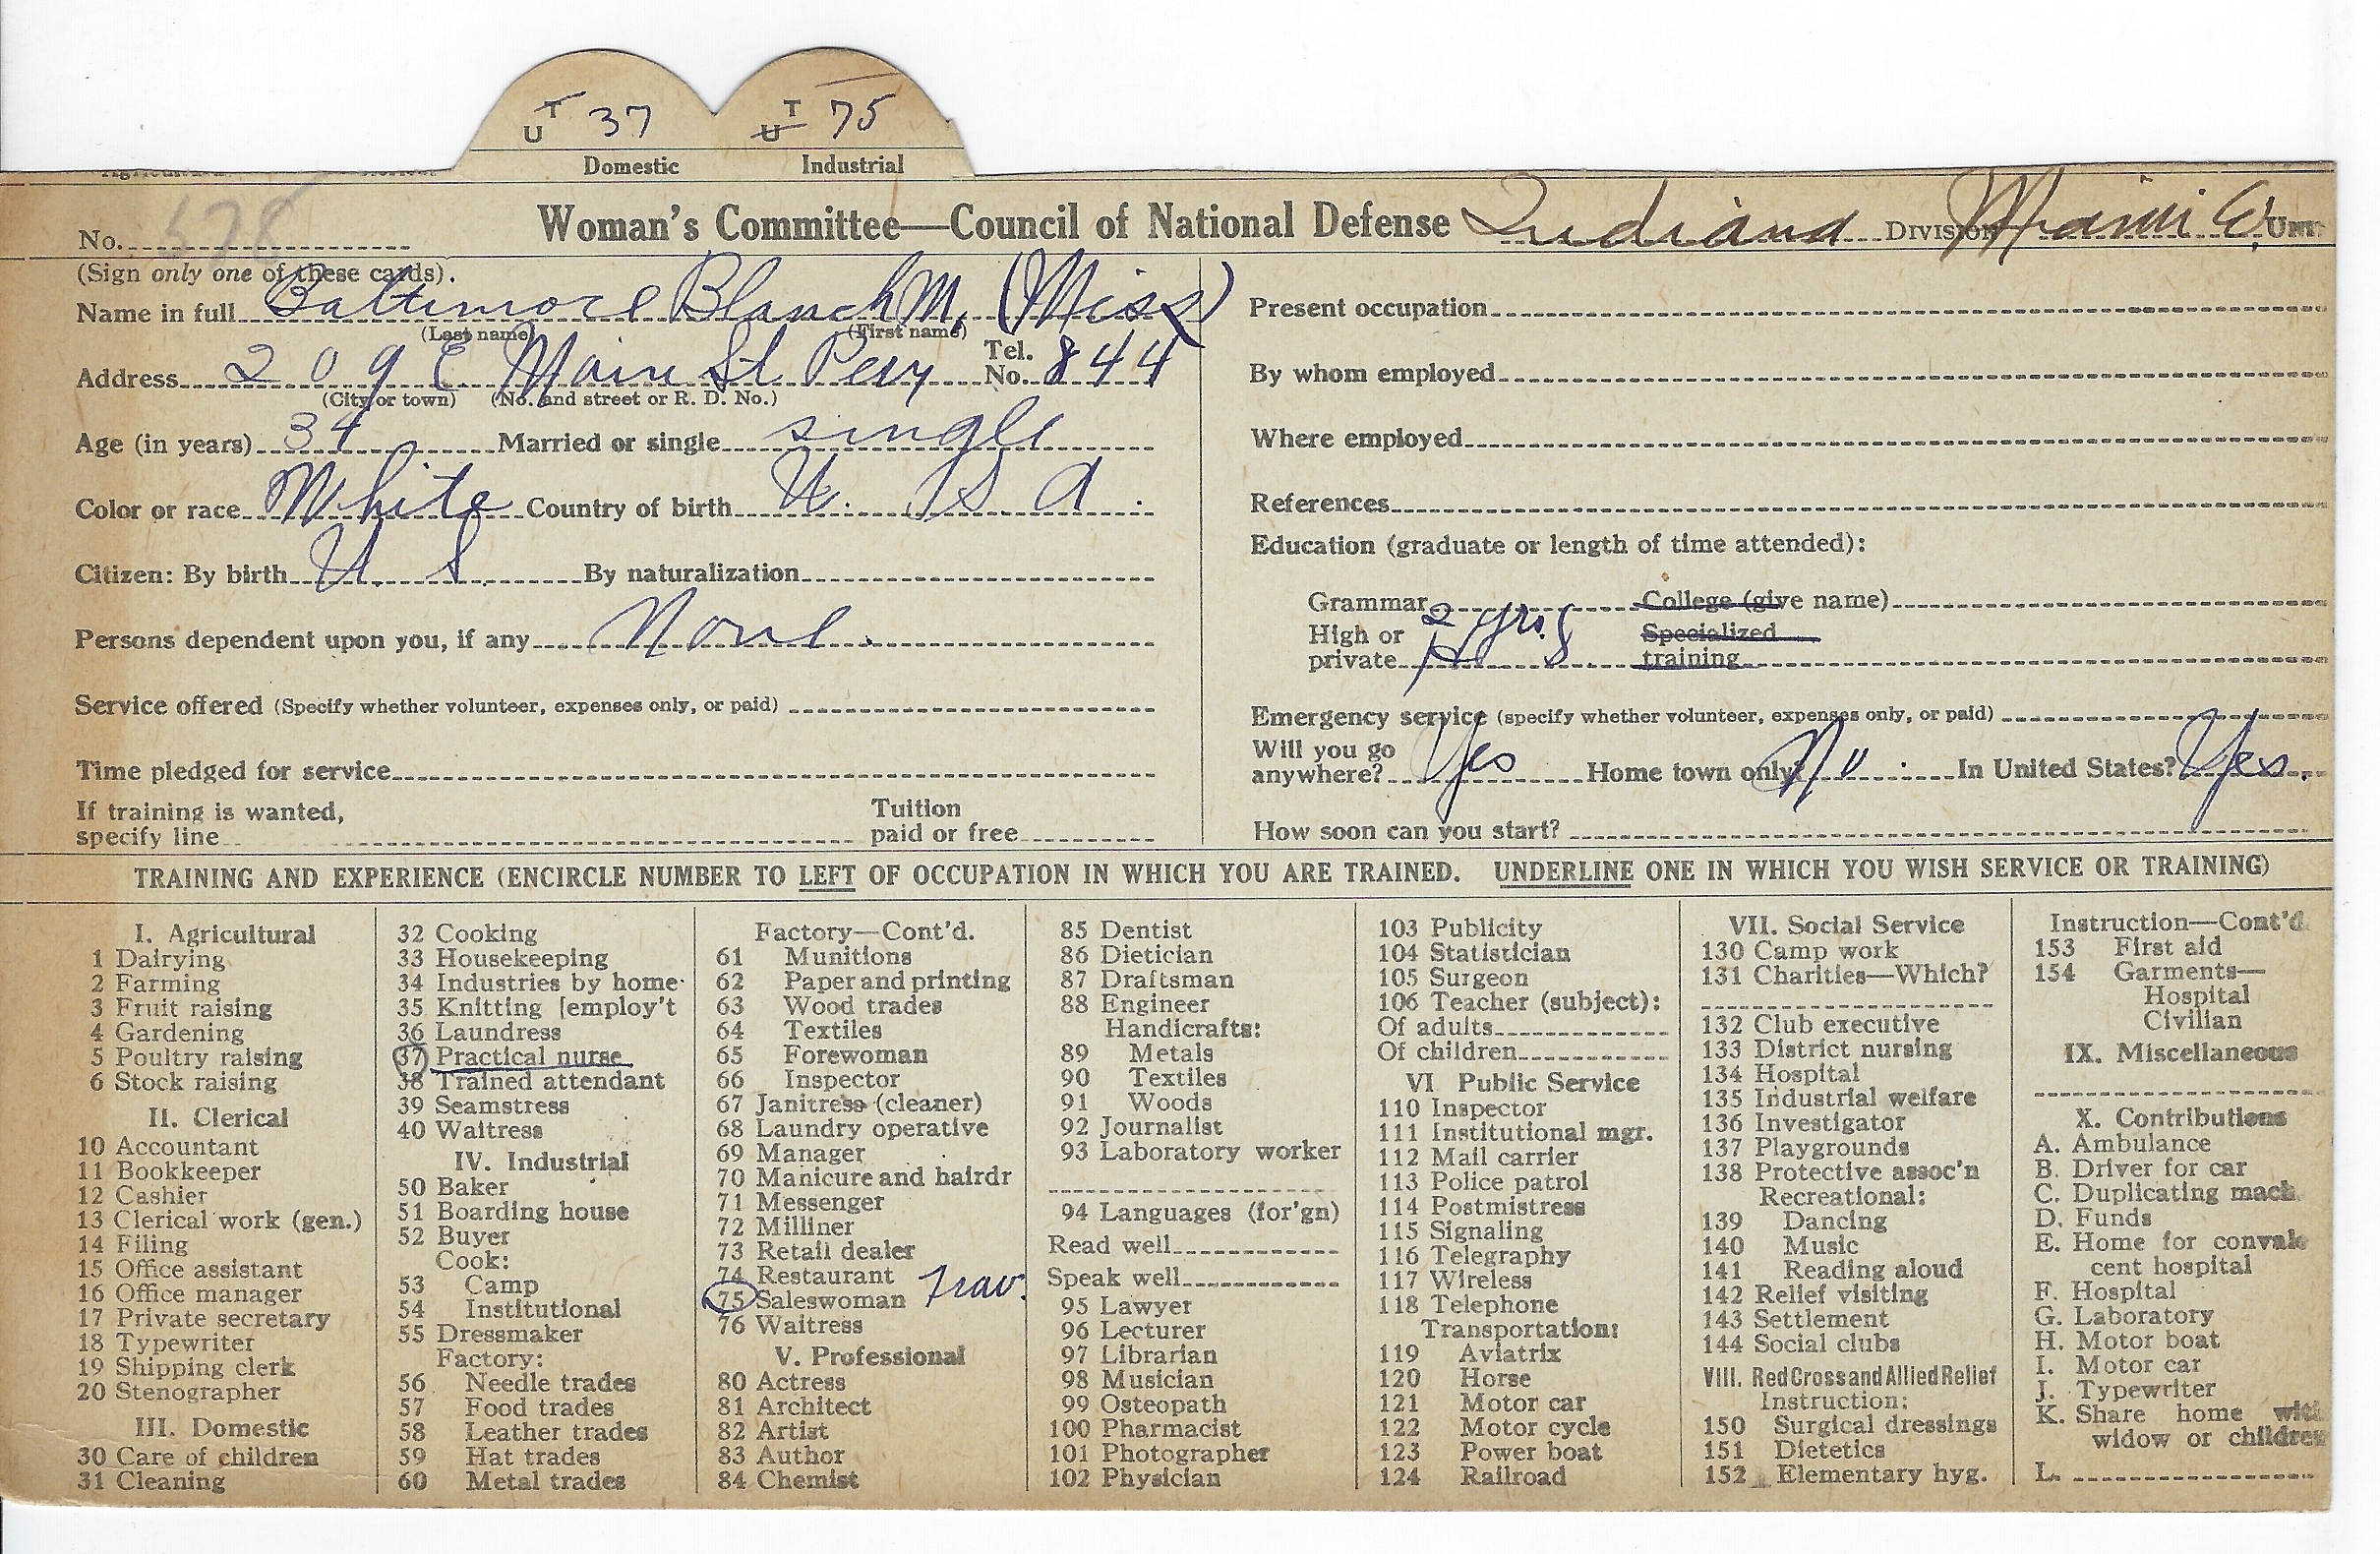 U T 37 U T 75
Domestic Industrial
No. 678 Woman's Committee—Council of National Defense Indiana Division Miami Co. Unit
(Sign only one of these cards).
Name in full Baltimore Blanch M. (Miss)
(Last name) (First name)
Address 209 E Main St Peru Tel. No. 844
(City or town) (No. and street or R. D. No.)
Age (in years) 34 Married or single single
Color or race White Country of birth U. S A.
Citizen: By birth U. S. By naturalization
Persons dependent upon you, if any None.
Service offered (Specify whether volunteer, expenses only, or paid)
Time pledged for service
If training is wanted, specify line
Tuition paid or free
Present occupation
By whom employed
Where employed
References
Education (graduate or length of time attended):
Grammar College (give name)
High or private 2 yrs. Specialized training
Emergency service (specify whether volunteer, expenses only, or paid)
Will you go anywhere? Yes Home town only? No. In United States? Yes.
How soon can you start?
TRAINING AND EXPERIENCE (ENCIRCLE NUMBER TO LEFT OF OCCUPATION IN WHICH YOU ARE TRAINED. UNDERLINE ONE IN WHICH YOU WISH SERVICE OR TRAINING)
I. Agricultural
1 Dairying
2 Farming
3 Fruit raising
4 Gardening
5 Poultry raising
6 Stock raising
II. Clerical
10 Accountant
11 Bookkeeper
12 Cashier
13 Clerical work (gen.)
14 Filing
15 Office assistant
16 Office manager
17 Private secretary
18 Typewriter
19 Shipping clerk
20 Stenographer
III. Domestic
30 Care of children
31 Cleaning
32 Cooking
33 Housekeeping
34 Industries by home
35 Knitting [employ't
36 Laundress
37 Practical nurse
38 Trained attendant
39 Seamstress
40 Waitress
IV. Industrial
50 Baker
51 Boarding house
52 Buyer
Cook:
53 Camp
54 Institutional
55 Dressmaker
Factory:
56 Needle trades
57 Food trades
58 Leather trades
59 Hat trades
60 Metal trades
Factory—Cont'd.
61 Munitions
62 Paper and printing
63 Wood trades
64 Textiles
65 Forewoman
66 Inspector
67 Janitress (cleaner)
68 Laundry operative
69 Manager
70 Manicure and hairdr
71 Messenger
72 Milliner
73 Retail dealer
74 Restaurant
75 Saleswoman Trav.
76 Waitress
V. Professional
80 Actress
81 Architect
82 Artist
83 Author
84 Chemist
85 Dentist
86 Dietician
87 Draftsman
88 Engineer
Handicrafts:
89 Metals
90 Textiles
91 Woods
92 Journalist
93 Laboratory worker
94 Languages (for'gn)
Read well
Speak well
95 Lawyer
96 Lecturer
97 Librarian
98 Musician
99 Osteopath
100 Pharmacist
101 Photographer
102 Physician
103 Publicity
104 Statistician
105 Surgeon
106 Teacher (subject):
Of adults
Of children
VI Public Service
110 Inspector
111 Institutional mgr.
112 Mail carrier
113 Police patrol
114 Postmistress
115 Signaling
116 Telegraphy
117 Wireless
118 Telephone
Transportation:
119 Aviatrix
120 Horse
121 Motor car
122 Motor cycle
123 Power boat
124 Railroad
VII. Social Service
130 Camp work
131 Charities—Which?
132 Club executive
133 District nursing
134 Hospital
135 Industrial welfare
136 Investigator
137 Playgrounds
138 Protective assoc'n
Recreational:
139 Dancing
140 Music
141 Reading aloud
142 Relief visiting
143 Settlement
144 Social clubs
VIII. Red Cross and Allied Relief
Instruction:
150 Surgical dressings
151 Dietetics
152 Elementary hyg.
Instruction—Cont'd.
153 First aid
154 Garments—
Hospital
Civilian
IX. Miscellaneous
X. Contributions
A. Ambulance
B. Driver for car
C. Duplicating mach.
D. Funds
E. Home for convales
cent hospital
F. Hospital
G. Laboratory
H. Motor boat
I. Motor car
J. Typewriter
K. Share home with
widow or children
L.